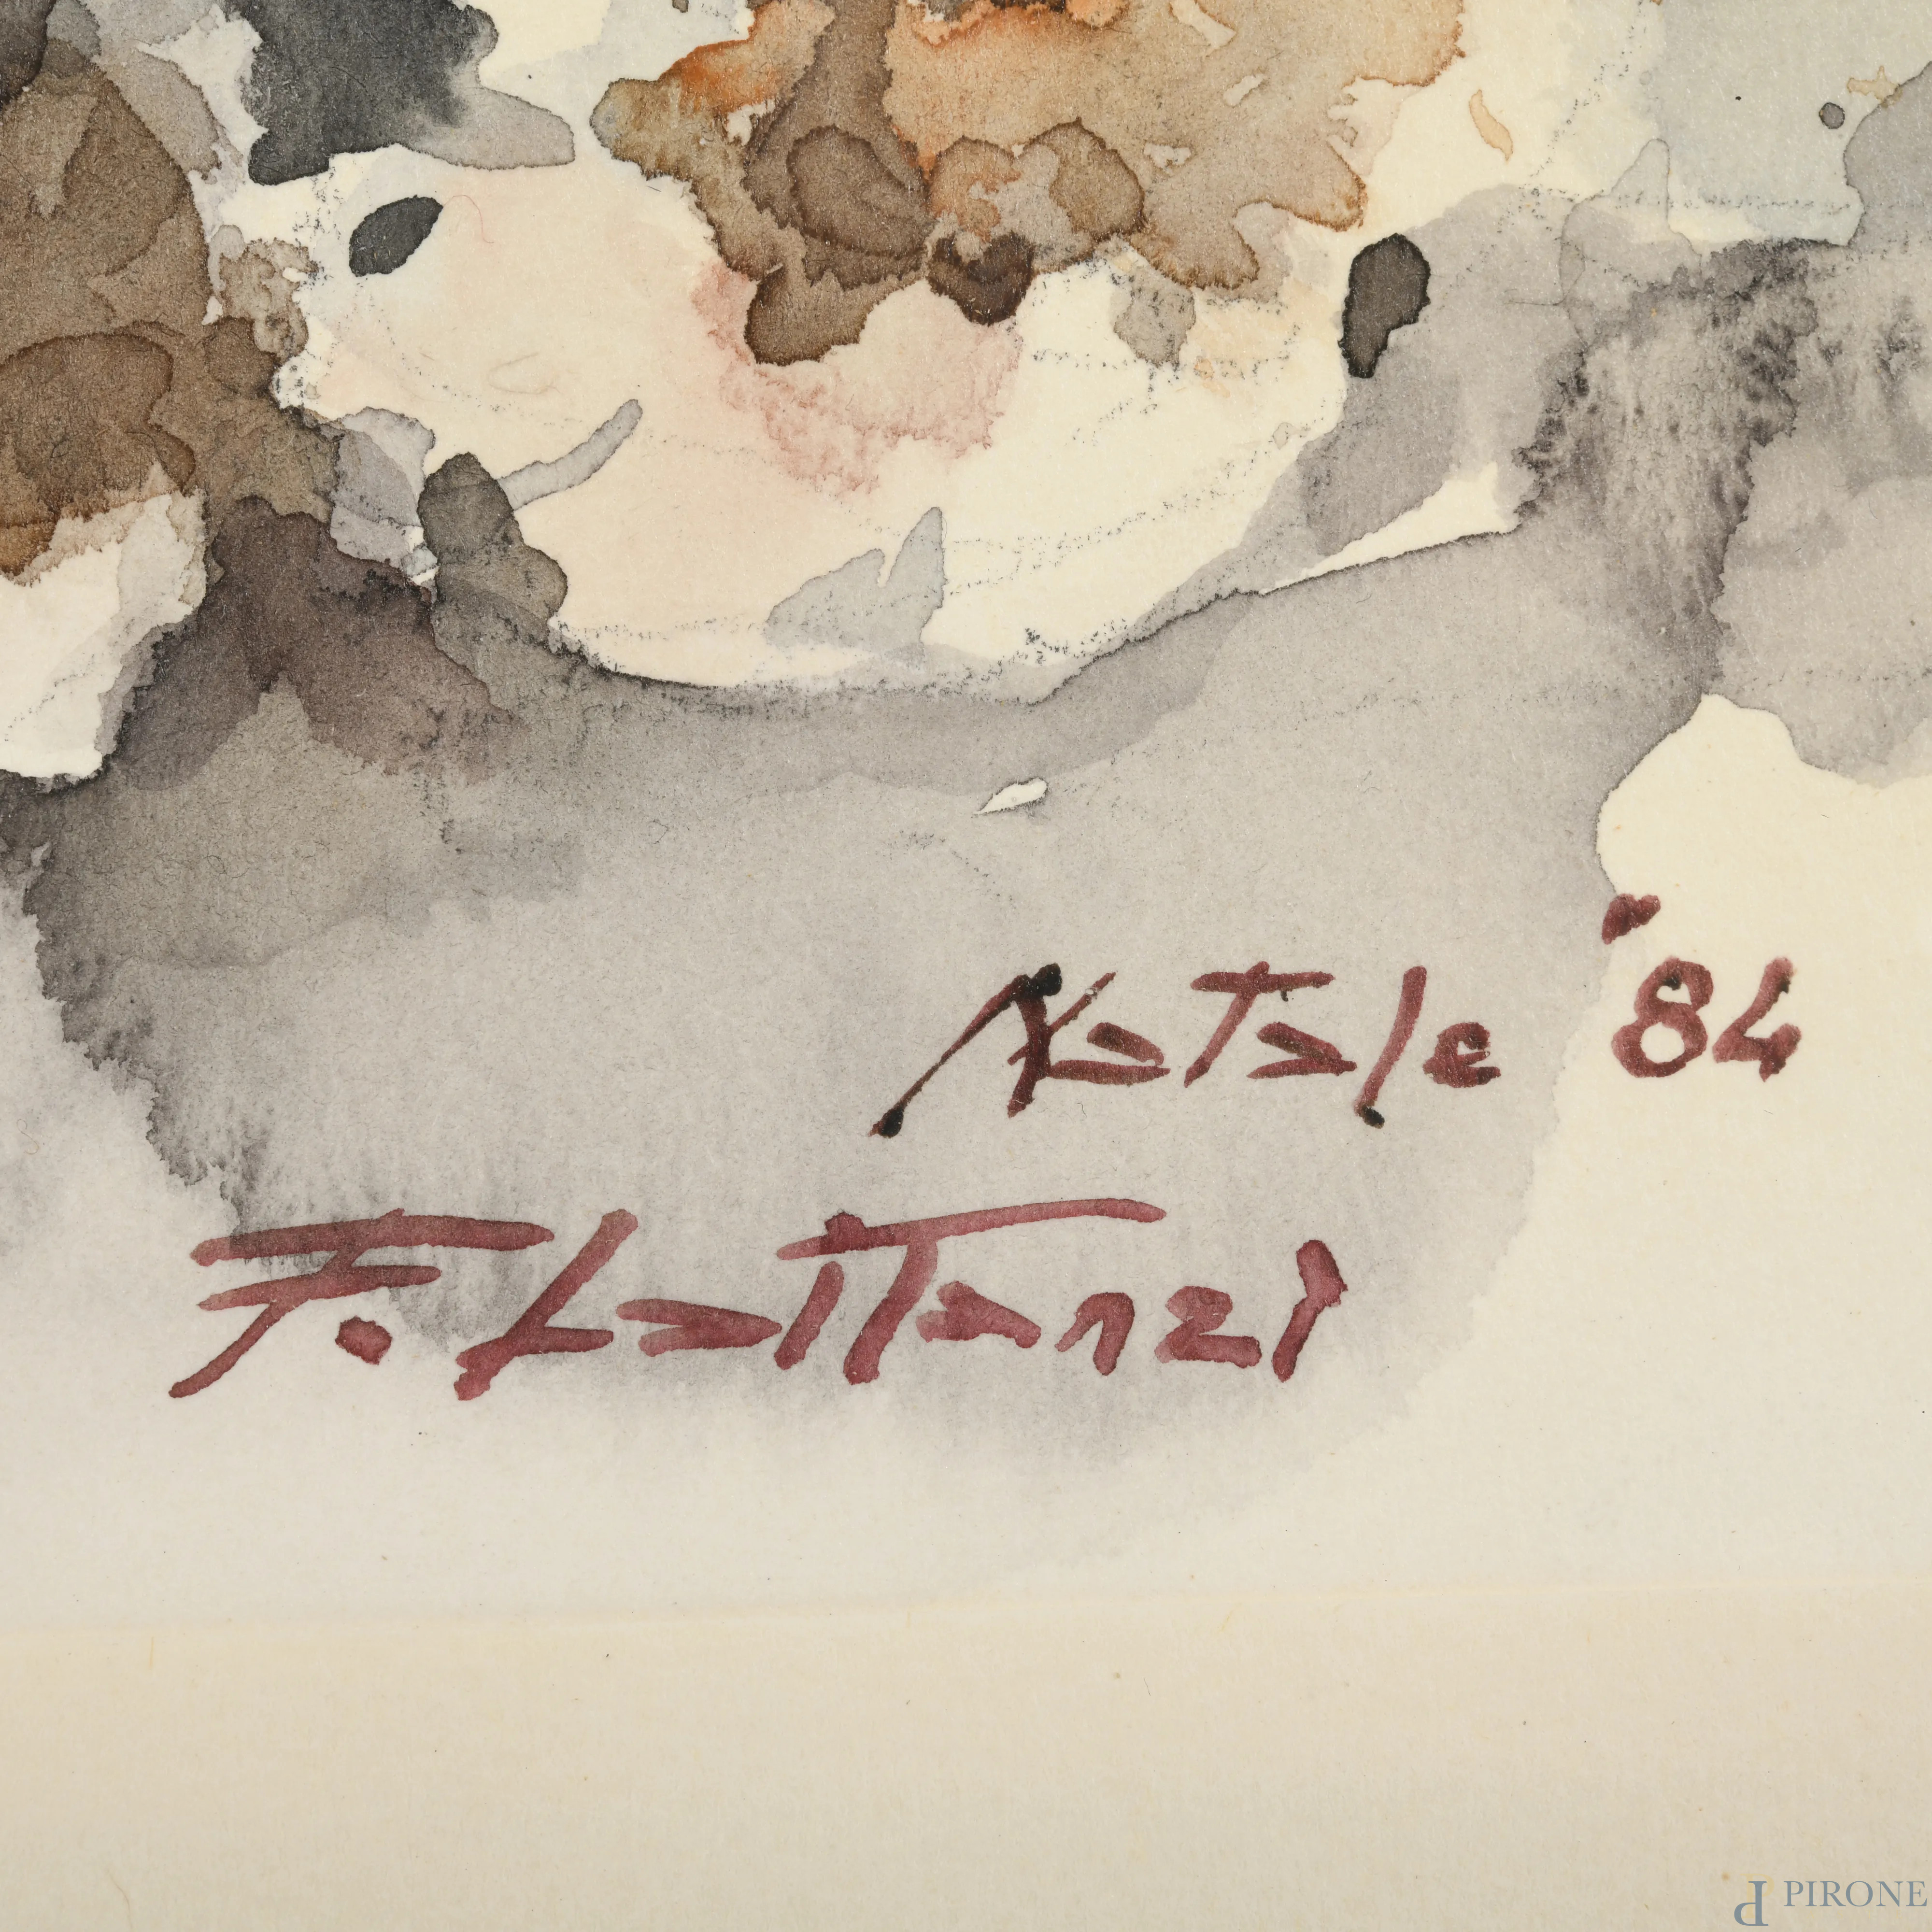 Natale '84
F. Lattanzi
PIRONE